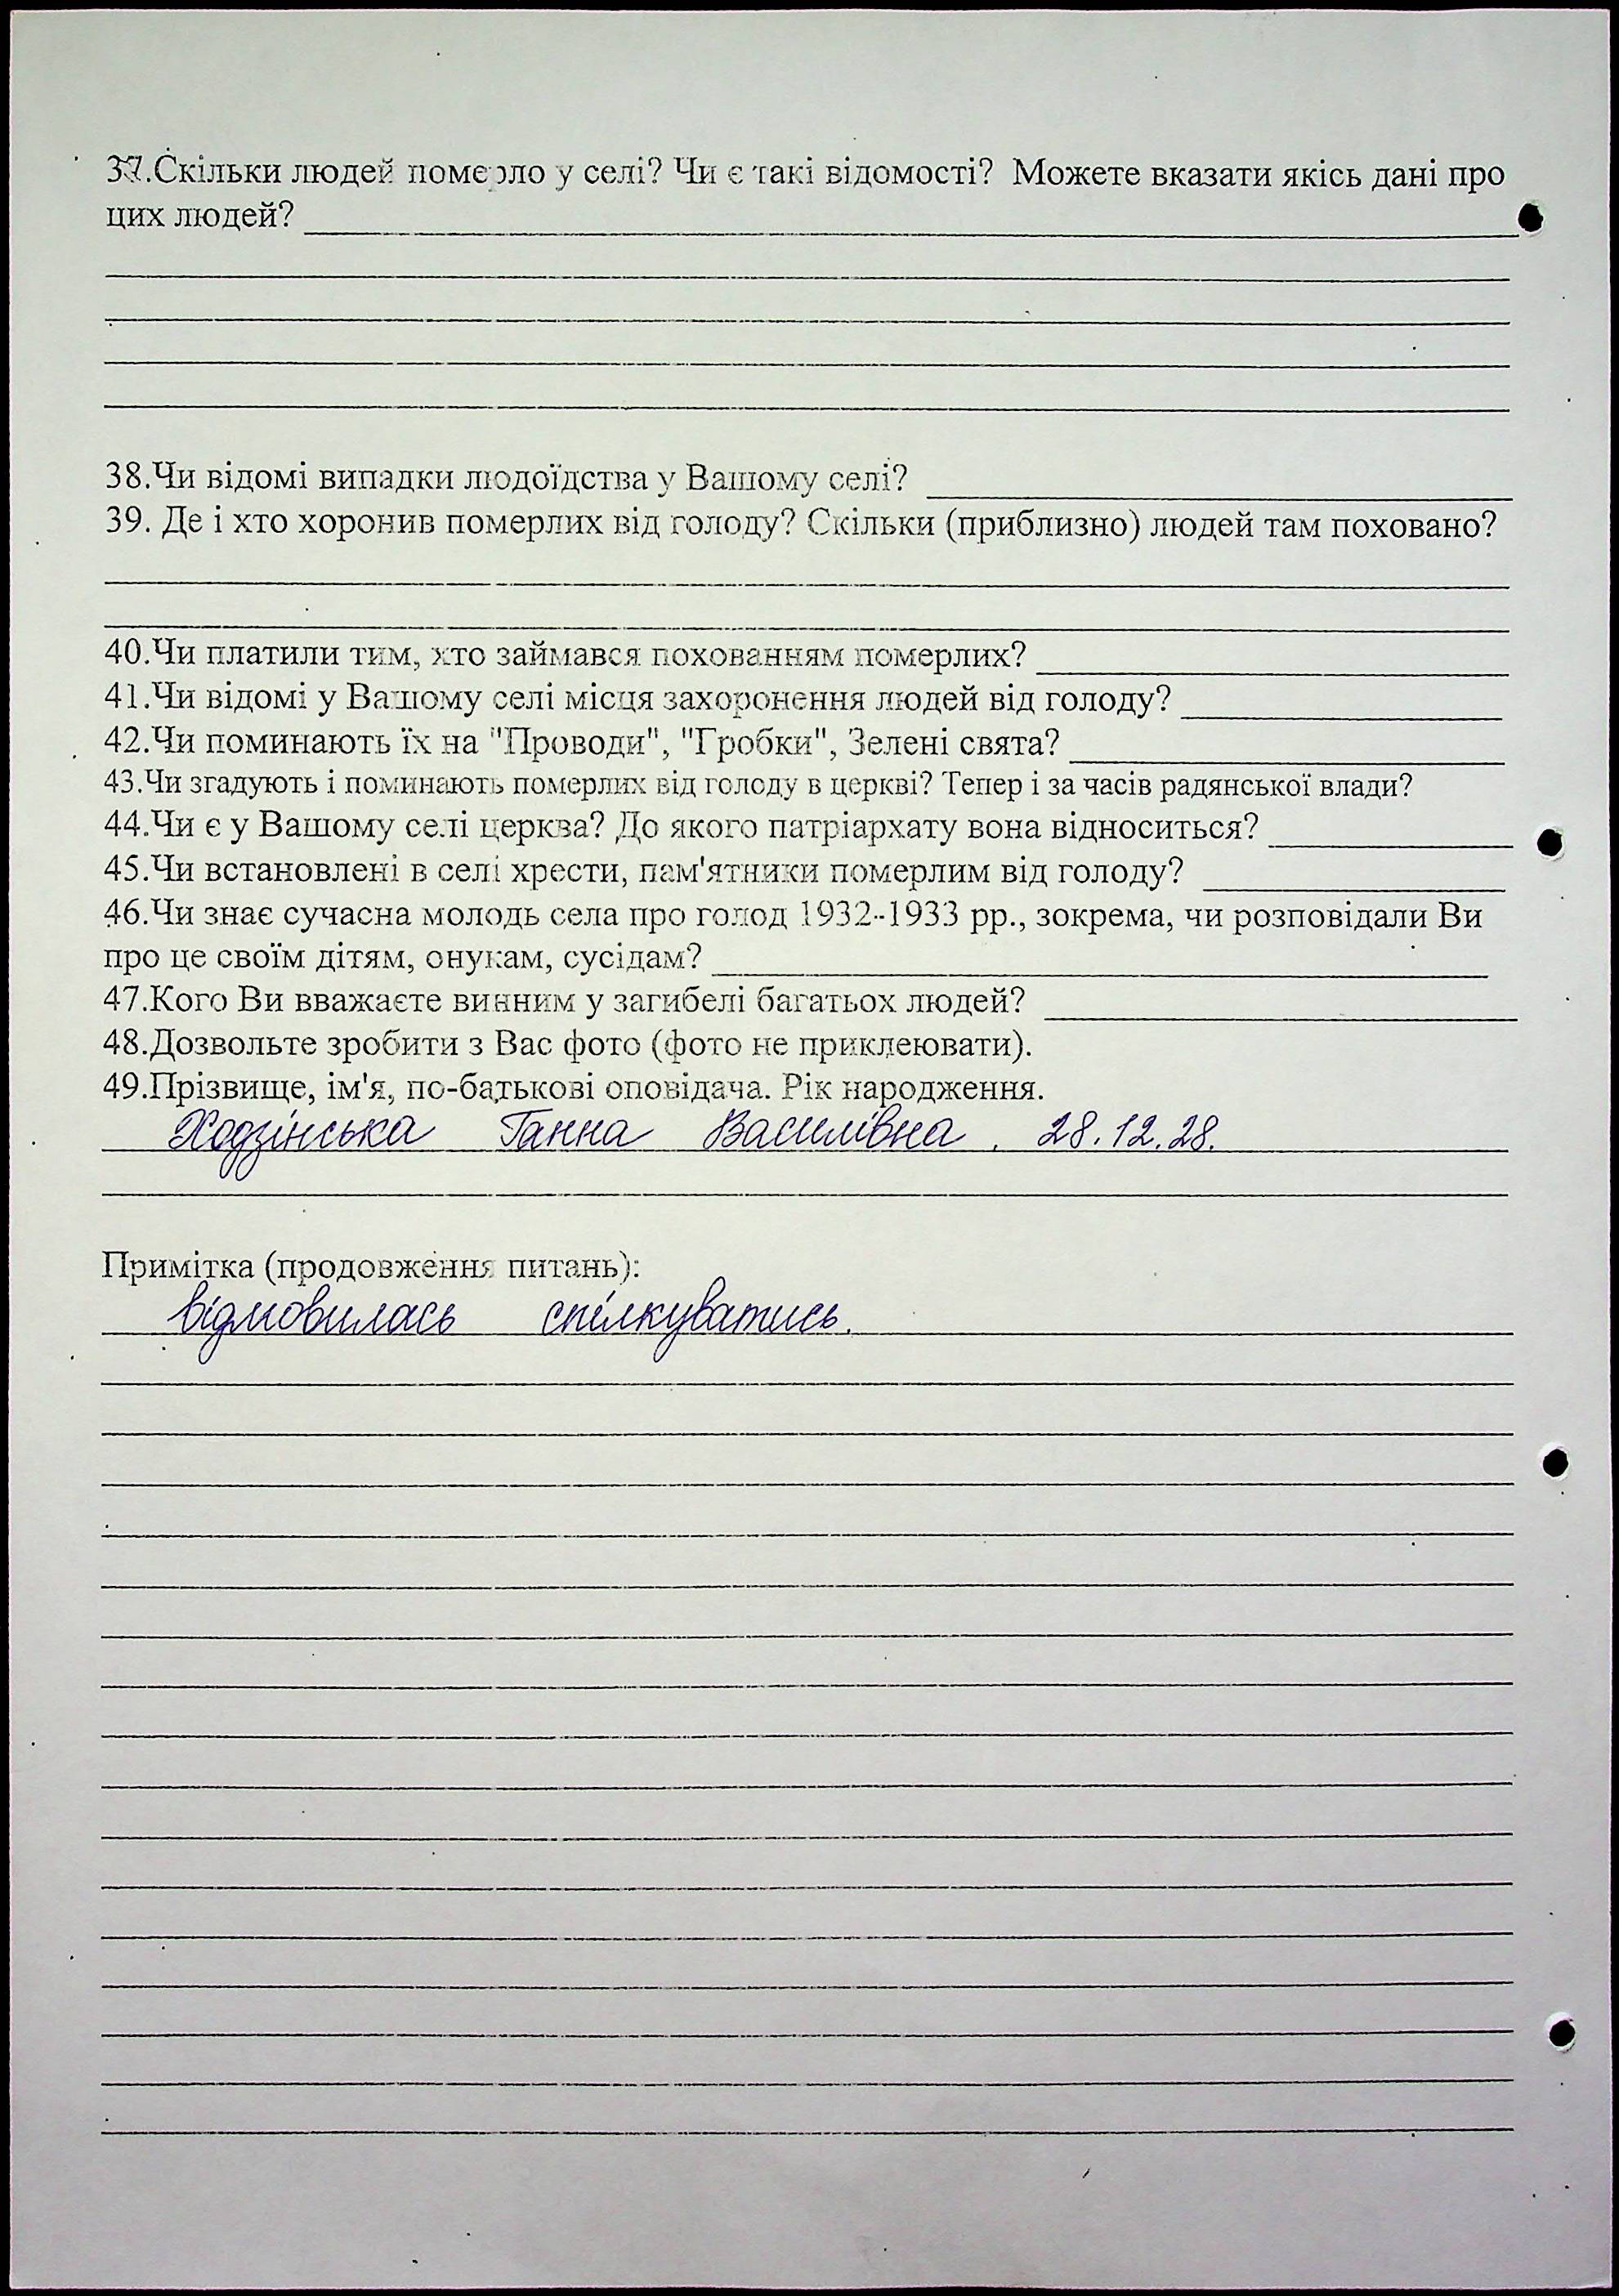 37.Скільки людей померло у селі? Чи є такі відомості? Можете вказати якісь дані про
цих людей?
38.Чи відомі випадки людоїдства у Вашому селі?
39. Де і хто хоронив померлих від голоду? Скільки (приблизно) людей там поховано?
40.Чи платили тим, хто займався похованням померлих?
41.Чи відомі у Вашому селі місця захоронення людей від голоду?
42.Чи поминають їх на "Проводи", "Гробки", Зелені свята?
43.Чи згадують і поминають померлих від голоду в церкві? Тепер і за часів радянської влади?
44.Чи є у Вашому селі церква? До якого патріархату вона відноситься?
45.Чи встановлені в селі хрести, пам'ятники померлим від голоду?
46.Чи знає сучасна молодь села про голод 1932-1933 рр., зокрема, чи розповідали Ви
про це своїм дітям, онукам, сусідам?
47.Кого Ви вважаєте винним у загибелі багатьох людей?
48.Дозвольте зробити з Вас фото (фото не приклеювати).
49.Прізвище, ім'я, по-батькові оповідача. Рік народження.
Ходзінська Ганна Василівна. 28.12.28.
Примітка (продовження питань):
відмовилась спілкуватись.